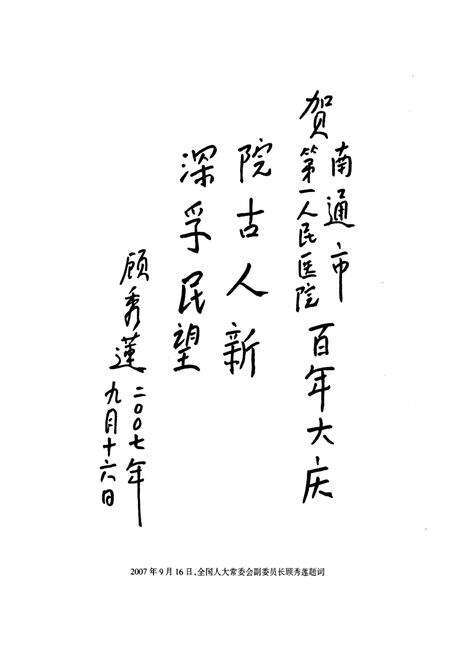 贺南通市第一人民医院百年大庆
院古人新
深孚民望
顾秀莲
二〇〇七年
九月十六日
2007年9月16日、全国人大常委会副委员长顾秀莲题词